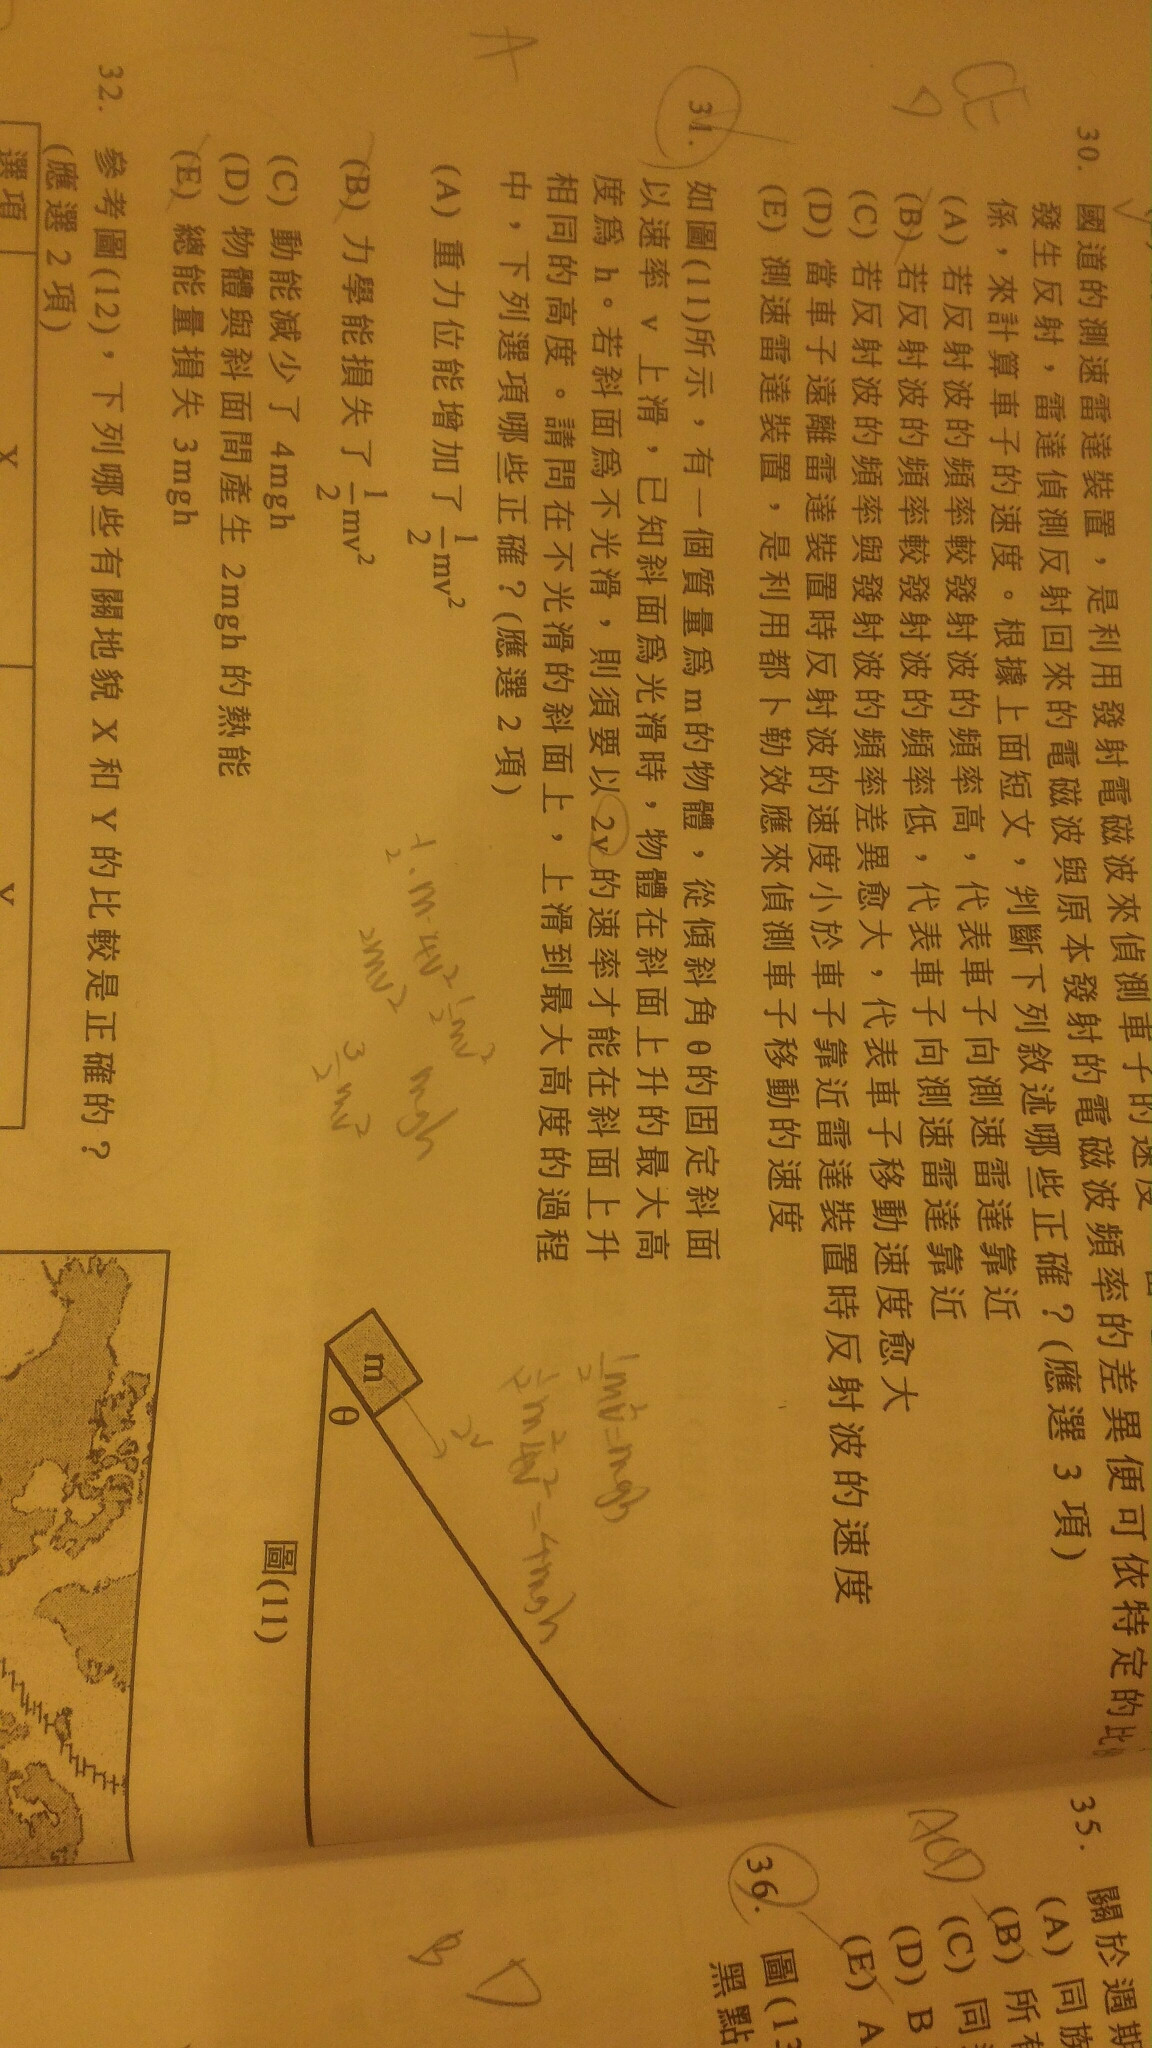 30. 國道的測速雷達裝置，是利用發射電磁波來偵測車子的速度
發生反射，雷達偵測反射回來的電磁波與原本發射的電磁波頻率的差異便可依特定的比
係，來計算車子的速度。根據上面短文，判斷下列敘述哪些正確？(應選 3 項)
(A) 若反射波的頻率較發射波的頻率高，代表車子向測速雷達靠近
(B) 若反射波的頻率較發射波的頻率低，代表車子向測速雷達靠近
(C) 若反射波的頻率與發射波的頻率差異愈大，代表車子移動速度愈大
(D) 當車子遠離雷達裝置時反射波的速度小於車子靠近雷達裝置時反射波的速度
(E) 測速雷達裝置，是利用都卜勒效應來偵測車子移動的速度
31. 如圖(11)所示，有一個質量為m的物體，從傾斜角θ的固定斜面
以速率 v 上滑，已知斜面為光滑時，物體在斜面上升的最大高
度為 h。若斜面為不光滑，則須要以 2v 的速率才能在斜面上升
相同的高度。請問在不光滑的斜面上，上滑到最大高度的過程
中，下列選項哪些正確？(應選 2 項)
(A) 重力位能增加了 1/2 mv²
(B) 力學能損失了 1/2 mv²
(C) 動能減少了 4mgh
(D) 物體與斜面間產生 2mgh 的熱能
(E) 總能量損失 3mgh
1/2 mv² = mgh
1/2 m 4v² = 4mgh
2v
m
θ
圖(11)
1/2 · m · 4v²
1/2 mv²
mgh
2mv²
3/2 mv²
32. 參考圖(12)，下列哪些有關地貌 X 和 Y 的比較是正確的？
(應選 2 項)
選項
X
Y
35. 關於週期
(A) 同族
(B) 所有
(C) 同
(D) B
(E) A
36. 圖(13
黑點
CE
A
ACD
B
D